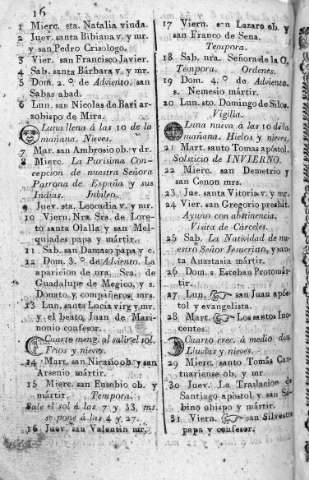 16
1 Mierc. sta. Natalia viuda.
2 Juev. santa Bibiana v. y mr.
y san Pedro Crisólogo.
3 Vier. san Francisco Javier.
4 Sab. santa Bárbara v. y mr.
5 Dom. 2.º de Adviento. san
Sabas abad.
6 Lun. san Nicolas de Bari ar
zobispo de Mira.
Luna llena á las 10 de la
mañana. Nieves.
7 Mar. san Ambrosio ob. y dr.
8 Mierc. La Purísima Con-
cepcion de nuestra Señora
Patrona de España y sus
Indias. Jubileo.
9 Juev. sta. Leocadia v. y mr.
10 Viern. Nra. Sra. de Lore-
to santa Olalla y san Mel-
quiades papa y mártir.
11 Sab. san Damaso papa y c.
12 Dom. 3.º de Adviento. La
aparicion de nra. Sra. de
Guadalupe de Mégico, y s.
Donato, y compañeros mrs.
13 Lun. santa Lucía virg. y mr.
y el beato Juan de Mari-
nonio confesor.
Cuarto meng. al salir el sol.
Frios y nieves.
14 Mart. san Nicasio ob. y san
Arsenio mártir.
15 Mierc. san Eusebio ob. y
mártir. Tempora.
Sale el sol á las 7 y 33. ms.
se pone á las 4 y 27.
16 Juev. san Valentin mr.
17 Viern. san Lazaro ob. y
san Franco de Sena.
Tempora.
18 Sab. nra. Señora de la O.
Tempora. Ordenes.
19 Dom. 4.º de Adviento.
s. Nemesio mártir.
20 Lun. sto. Domingo de Silos.
Vigilia.
Luna nueva á las 10 de la
mañana. Hielos y nieves.
21 Mart. santo Tomas apóstol.
Solsticio de INVIERNO.
22 Mierc. san Demetrio y
san Cenon mrs.
23 Jue. santa Vitoria v. y mr.
24 Vier. san Gregorio presbit.
Ayuno con abstinencia.
Visita de Cárceles.
25 Sab. La Natividad de nu-
estro Señor Jesucristo, y san-
ta Anastasia mártir.
26 Dom. s. Esteban Protomár-
tir.
27 Lun. san Juan após-
tol y evangelista.
28 Mart. Los santos Ino-
centes.
Cuarto crec. á medio dia.
Lluvias y nieves.
29 Mierc. santo Tomás Can-
tuariense ob. y mr.
30 Juev. La Traslacion de
Santiago apóstol, y san Sa-
bino obispo y mártir.
31 Viern. san Silvestre
papa y confesor.